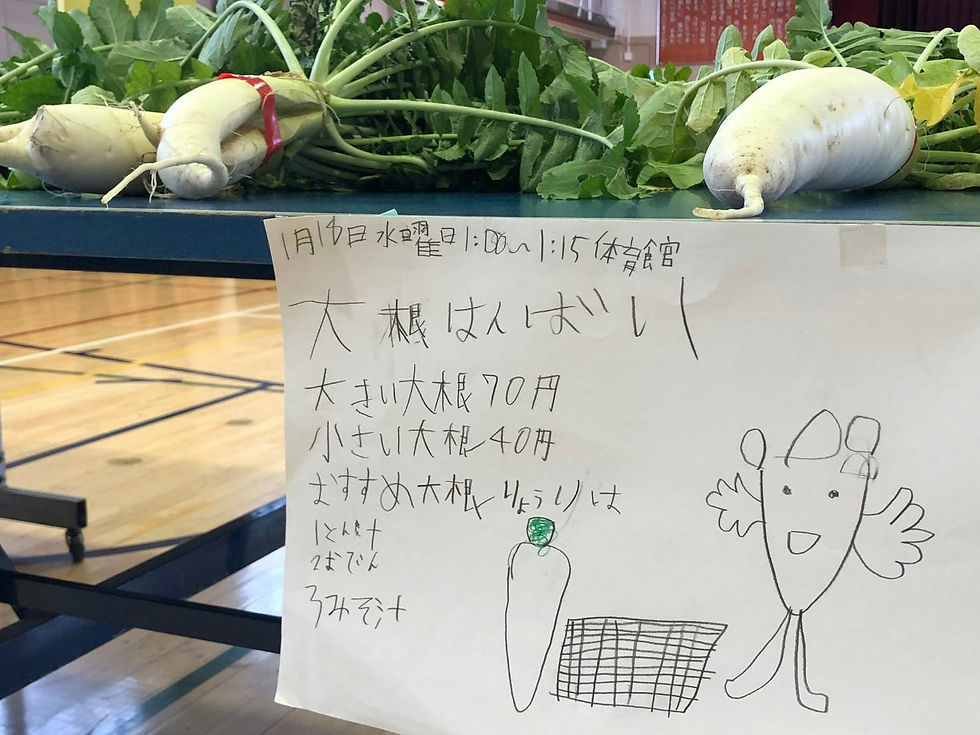 1月18日水曜日1:00〜1:15体育館
大根はんばい
大きい大根70円
小さい大根40円
おすすめ大根りょうりは
1とん汁
2おでん
3みそ汁